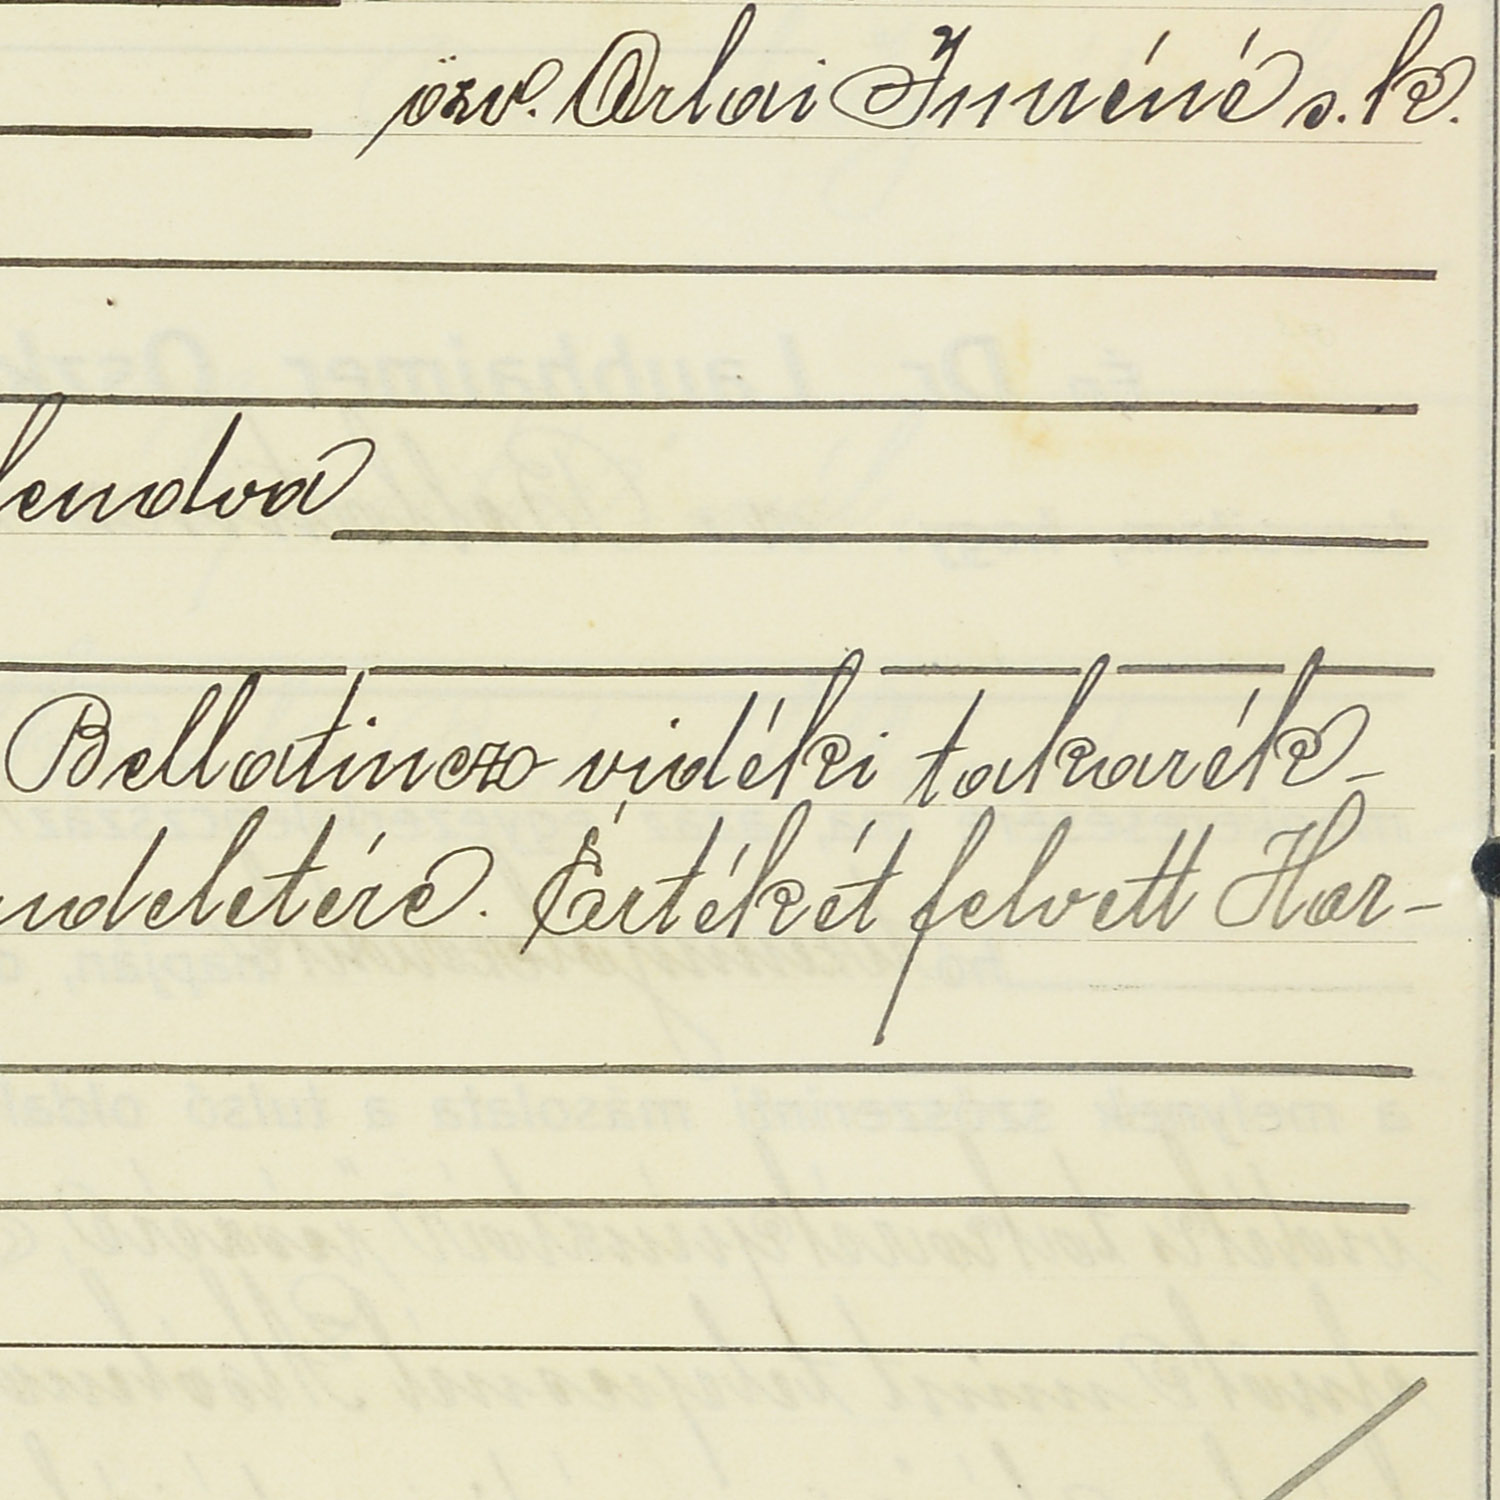 özv. Orlai Imréné s. k.
lendva
Bellatincz vidéki takarék-
ndeletére. Értékét felvett Har-